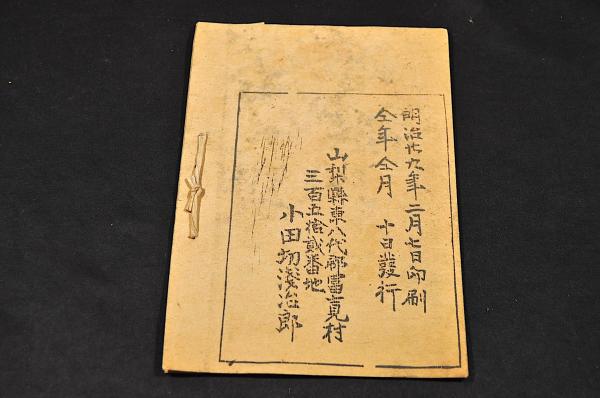 明治廿九年二月七日印刷
仝年仝月十日發行
山梨縣東八代郡富士見村
三百五拾貳番地
小田切淺治郎